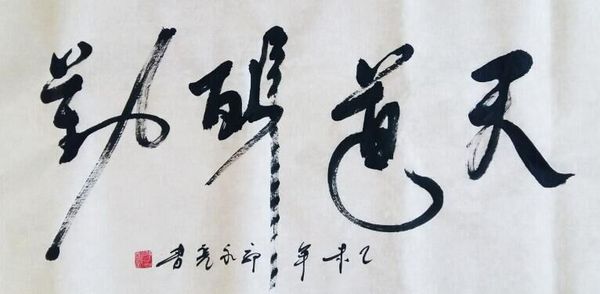 天道酬勤
乙未年 永亮书